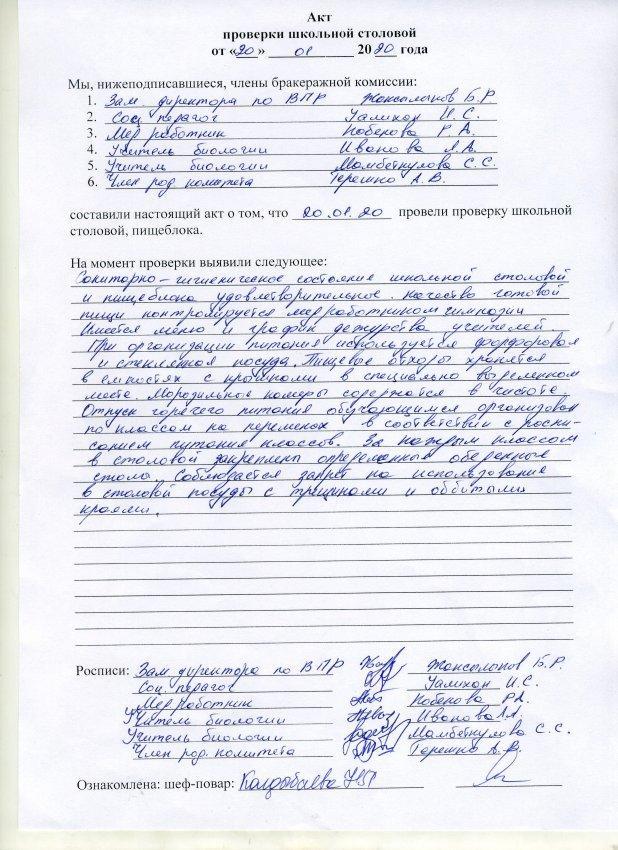 Акт
проверки школьной столовой
от «20» 01 2020 года
Мы, нижеподписавшиеся, члены бракеражной комиссии:
1. Зам. директора по ВПР Жансылыков Б.Р
2. Соц педагог Уалихан И.С.
3. Мед работник Кобекова Р.А.
4. Учитель биологии Иванова Л.А.
5. Учитель биологии Мамбеткулова С.С.
6. Член род комитета Терешко А.В.
составили настоящий акт о том, что 20.01.20 провели проверку школьной
столовой, пищеблока.
На момент проверки выявили следующее:
Санитарно-гигиеническое состояние школьной столовой
и пищеблока удовлетворительное. Качество готовой
пищи контролируется медработником гимназии
Имеется меню и график дежурства учителей.
При организации питания используется фарфоровая
и стеклянная посуда. Пищевые отходы хранятся
в емкостях с крышками в специально выделенном
месте. Морозильные камеры содержатся в чистоте.
Отпуск горячего питания обучающимся организован
по классам на переменах в соответствии с распи-
санием питания классов. За каждым классом
в столовой закреплены определенные обеденные
столы. Соблюдается запрет на использование
в столовой посуды с трещинами и оббитыми
краями.
Росписи: Зам директора по ВПР Жансылыков Б.Р.
Соц. педагог Уалихан И.С.
Мед работник Кобекова Р.А.
Учитель биологии Иванова Л.А.
Учитель биологии Мамбеткулова С.С.
Член род. комитета Терешко А.В.
Ознакомлена: шеф-повар: